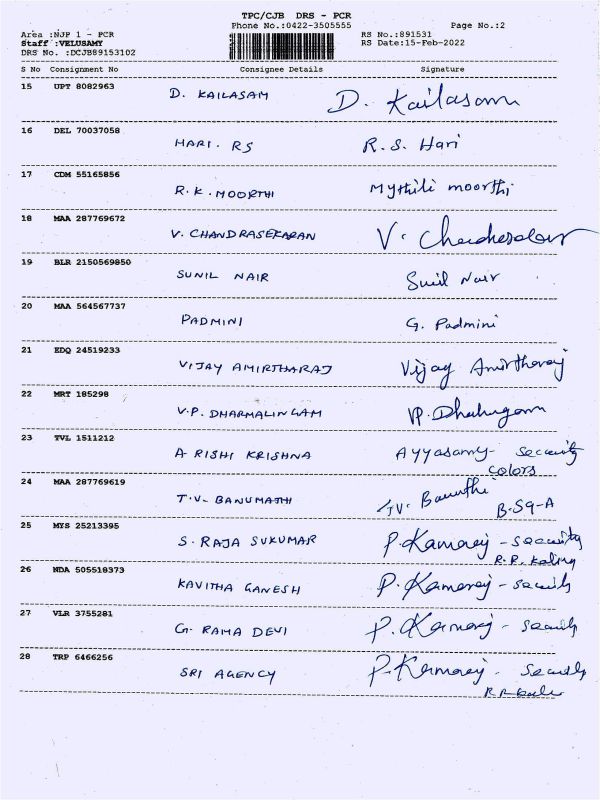 TPC/CJB DRS - PCR
Phone No.:0422-3505555 Page No.:2
Area :NJF 1 - PCR RS No.:891531
Staff :VELUSAMY RS Date:15-Feb-2022
DRS No. :DCJB89153102
S No Consignment No Consignee Details Signature
15 UPT 8082963 D. KAILASAM D. Kailasam
16 DEL 70037058 HARI. RS R.S. Hari
17 CDM 55165856 R.K. MOORTHI Mythili moorthi
18 MAA 287769672 V. CHANDRASEKARAN V.
19 BLR 2150569850 SUNIL NAIR Sunil Nair
20 MAA 564567737 PADMINI G. Padmini
21 EDQ 24519233 VIJAY AMIRTHARAJ Vijay Amirtharaj
22 MRT 185298 V.P. DHARMALINGAM VP.
23 TVL 1511212 A RISHI KRISHNA Ayyasamy - security
colors
24 MAA 287769619 T.V. BANUMATHI TV.
B-59-A
25 MYS 25213395 S. RAJA SUKUMAR P. Kamaraj - security
R.R.
26 NDA 505518373 KAVITHA GANESH P. Kamaraj - security
27 VLR 3755281 G. RAMA DEVI P. Kamaraj - security
28 TRP 6466256 SRI AGENCY P. Kamaraj - security
R.R.